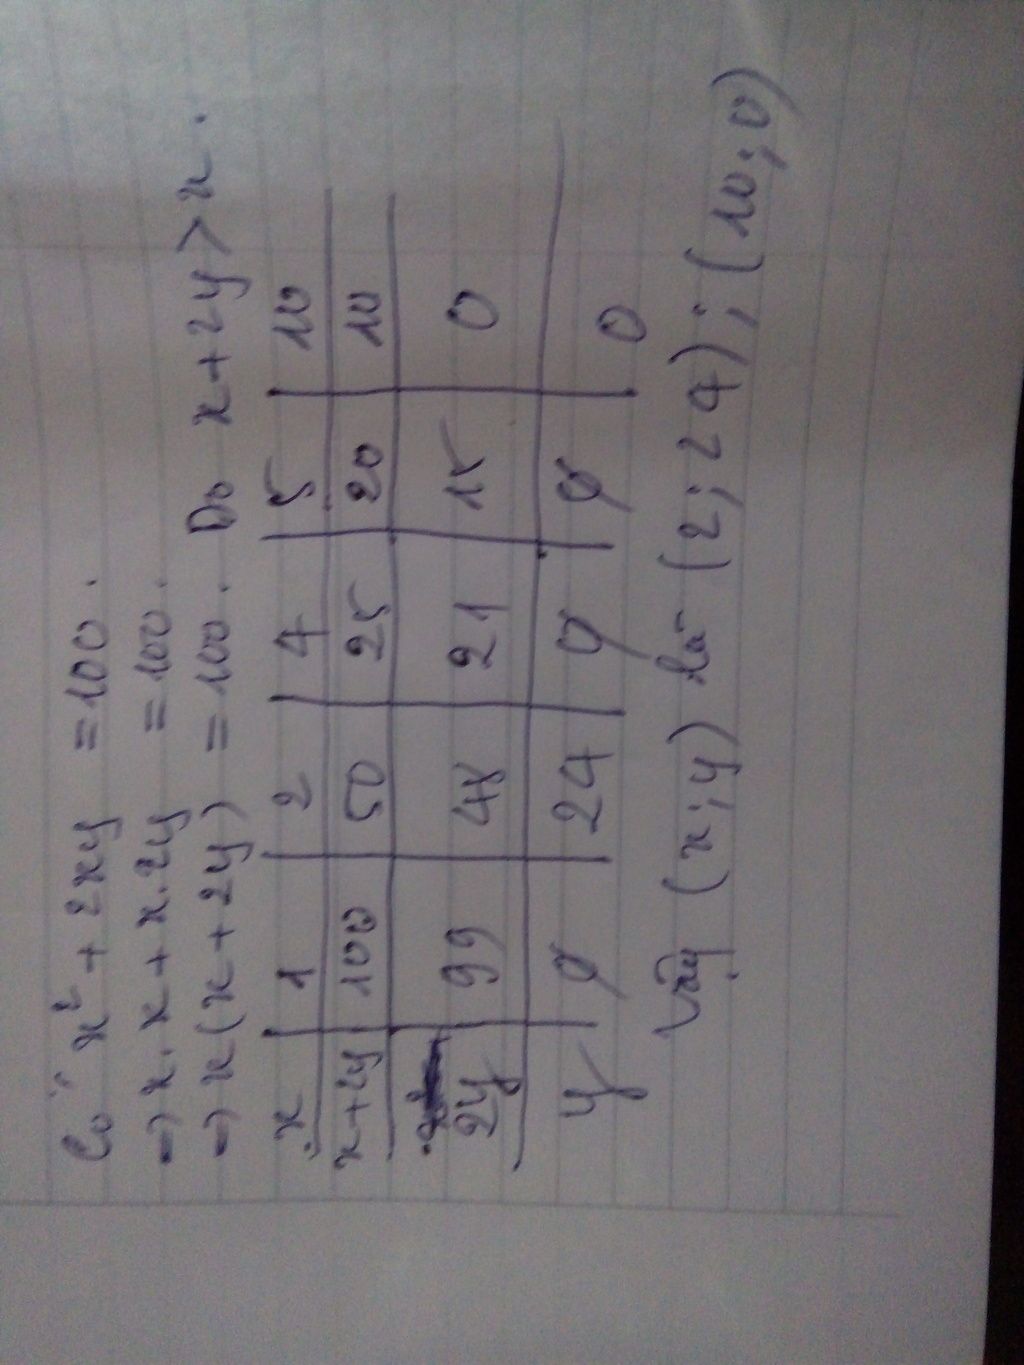 Có x² + 2xy = 100.
=> x.x + x.2y = 100.
=> x(x + 2y) = 100. Do x + 2y > x.
x 1 2 4 5 10
x+2y 100 50 25 20 10
2y 99 48 21 15 0
y ∅ 24 ∅ ∅ 0
Vậy (x;y) là (2;24);(10;0)